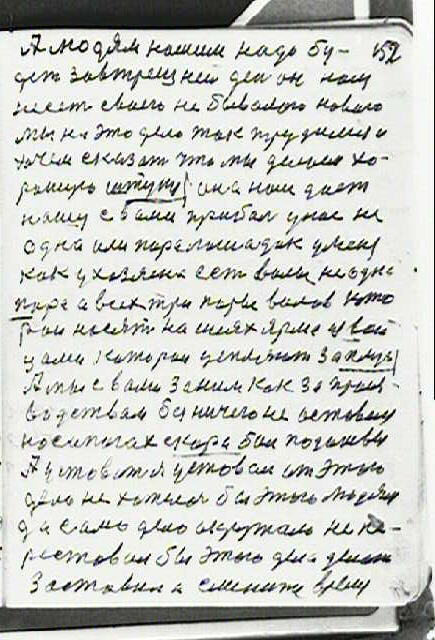 А людям нашим надо бу- 152
дет завтрешней ден он нам
несет своего не бывалого нового
мы на это дело так трудимся и
хочем сказат что мы делаем хо-
рошую штуку она нам дает
нашу с вами прибал у нас не
одна или пара лошадок у меня
как у хозяина ест валы не одна
пара а всех три пары валов кото
рои носят на шеях ярмо и
цами катораи цепляют за
А мы с вами заним как за произ-
водствам без ничего не оставаи
на сапогах скора бал подошвы
А устават я уставал от этого
дела не хателся бы этого людям
да само дело окружало не пе-
реставал бы этого дела делат
заставил а сменит время